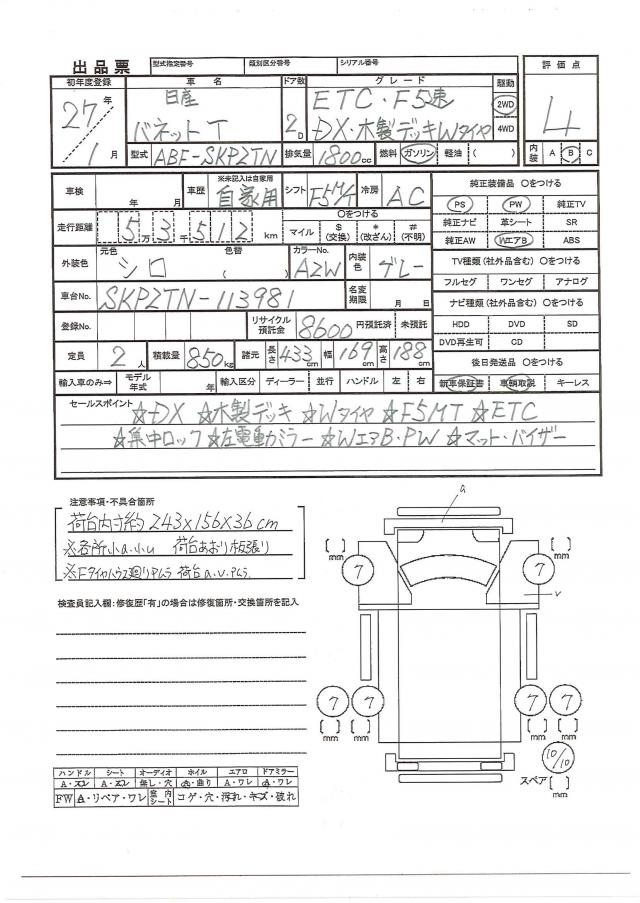 出品票 型式指定番号 類別区分番号 シリアル番号
初年度登録 車名 ドア数 グレード 駆動 評価点
27年 日産 ETC・F5速 2WD
1月 バネットT 2D DX・木製デッキWタイヤ 4WD 4
型式 ABF-SKP2TN 排気量 1800cc 燃料 ガソリン 軽油 ( ) 内装 A B C
車検 年 月 車歴 ※未記入は自家用 自家用 シフト F5M/T 冷房 AC 純正装備品 〇をつける
走行距離 5万3千512km 〇をつける マイル $(交換) *(改ざん) #(不明) PS PW 純正TV
純正ナビ 革シート SR
純正AW WエアB ABS
外装色 元色 シロ 色替 ( ) カラーNo. A2W 内装色 グレー TV種類(社外品含む)〇をつける
フルセグ ワンセグ アナログ
車台No. SKP2TN-113981 名変期限 月 日 ナビ種類(社外品含む)〇をつける
登録No. リサイクル預託金 8600円預託済 未預託 HDD DVD SD
DVD再生可 CD
定員 2人 積載量 850kg 諸元 長さ 433cm 幅 169cm 高さ 188cm 後日発送品 〇をつける
輸入車のみ⇒ モデル年式 年 輸入区分 ディーラー 並行 ハンドル 左 右 新車保証書 車輌取説 キーレス
セールスポイント
☆DX ☆木製デッキ ☆Wタイヤ ☆F5MT ☆ETC
☆集中ロック ☆左電動ミラー ☆WエアB・PW ☆マット・バイザー
注意事項・不具合箇所
荷台内寸約243×156×36cm
※各所小a.小u 荷台あおり板張り
※Fタイヤハウス廻りサムラ 荷台a.v.サムラ
検査員記入欄:修復歴「有」の場合は修復箇所・交換箇所を記入
a
[ ] mm 7 7 [ ] mm
v
7 7 7 7
[ ] mm [ ] mm [ ] mm [ ] mm
10/10
スペア [ ] mm
ハンドル シート オーディオ ホイル エアロ ドアミラー
A・スレ A・スレ 無し・穴 a・曲り A・ワレ a・ワレ
FW A・リペア・ワレ 室内シート コゲ・穴・汚れ・キズ・破れ